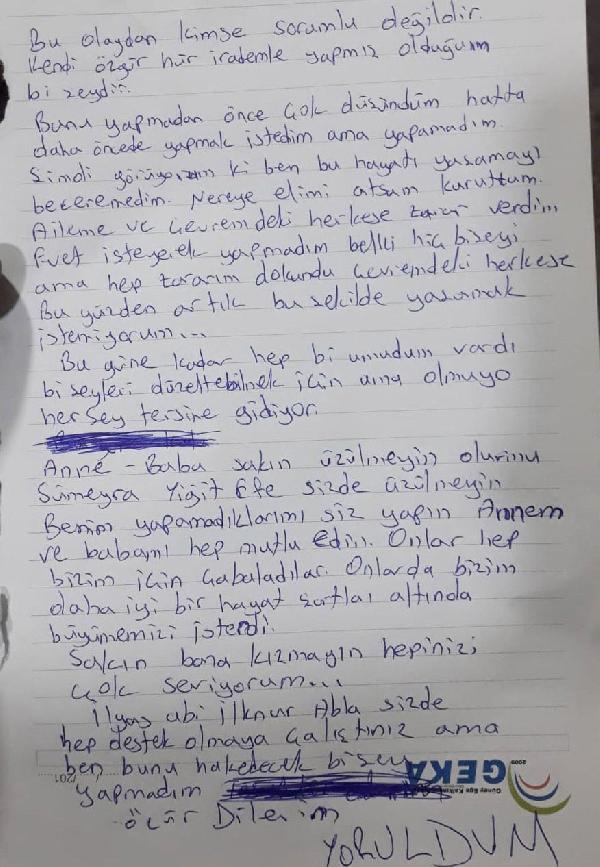 Bu olaydan kimse sorumlu değildir.
Kendi özgür hür irademle yapmış olduğum
bi şeydir.
Bunu yapmadan önce çok düşündüm hatta
daha öncede yapmak istedim ama yapamadım.
Şimdi görüyorum ki ben bu hayatı yaşamayı
beceremedim. Nereye elimi atsam kuruttum.
Aileme ve çevremdeki herkese zarar verdim
Evet isteyerek yapmadım belki hiç bişeyi
ama hep zararım dokundu çevremdeki herkese
Bu yüzden artık bu şekilde yaşamak
istemiyorum...
Bu güne kadar hep bi umudum vardı
bişeyleri düzeltebilmek için ama olmuyo
herşey tersine gidiyor.
Anne - Baba sakın üzülmeyin olurmu
Sümeyra Yiğit Efe sizde üzülmeyin
Benim yapamadıklarımı siz yapın Annem
ve babamı hep mutlu edin. Onlar hep
bizim için çabaladılar. Onlarda bizim
daha iyi bir hayat şartları altında
büyümemizi isterdi.
Sakın bana kızmayın hepinizi
çok seviyorum...
İlyas abi İlknur Abla sizde
hep destek olmaya çalıştınız ama
ben bunu hakedecek bişey
yapmadım
özür Dilerim
YORULDUM
GEKA